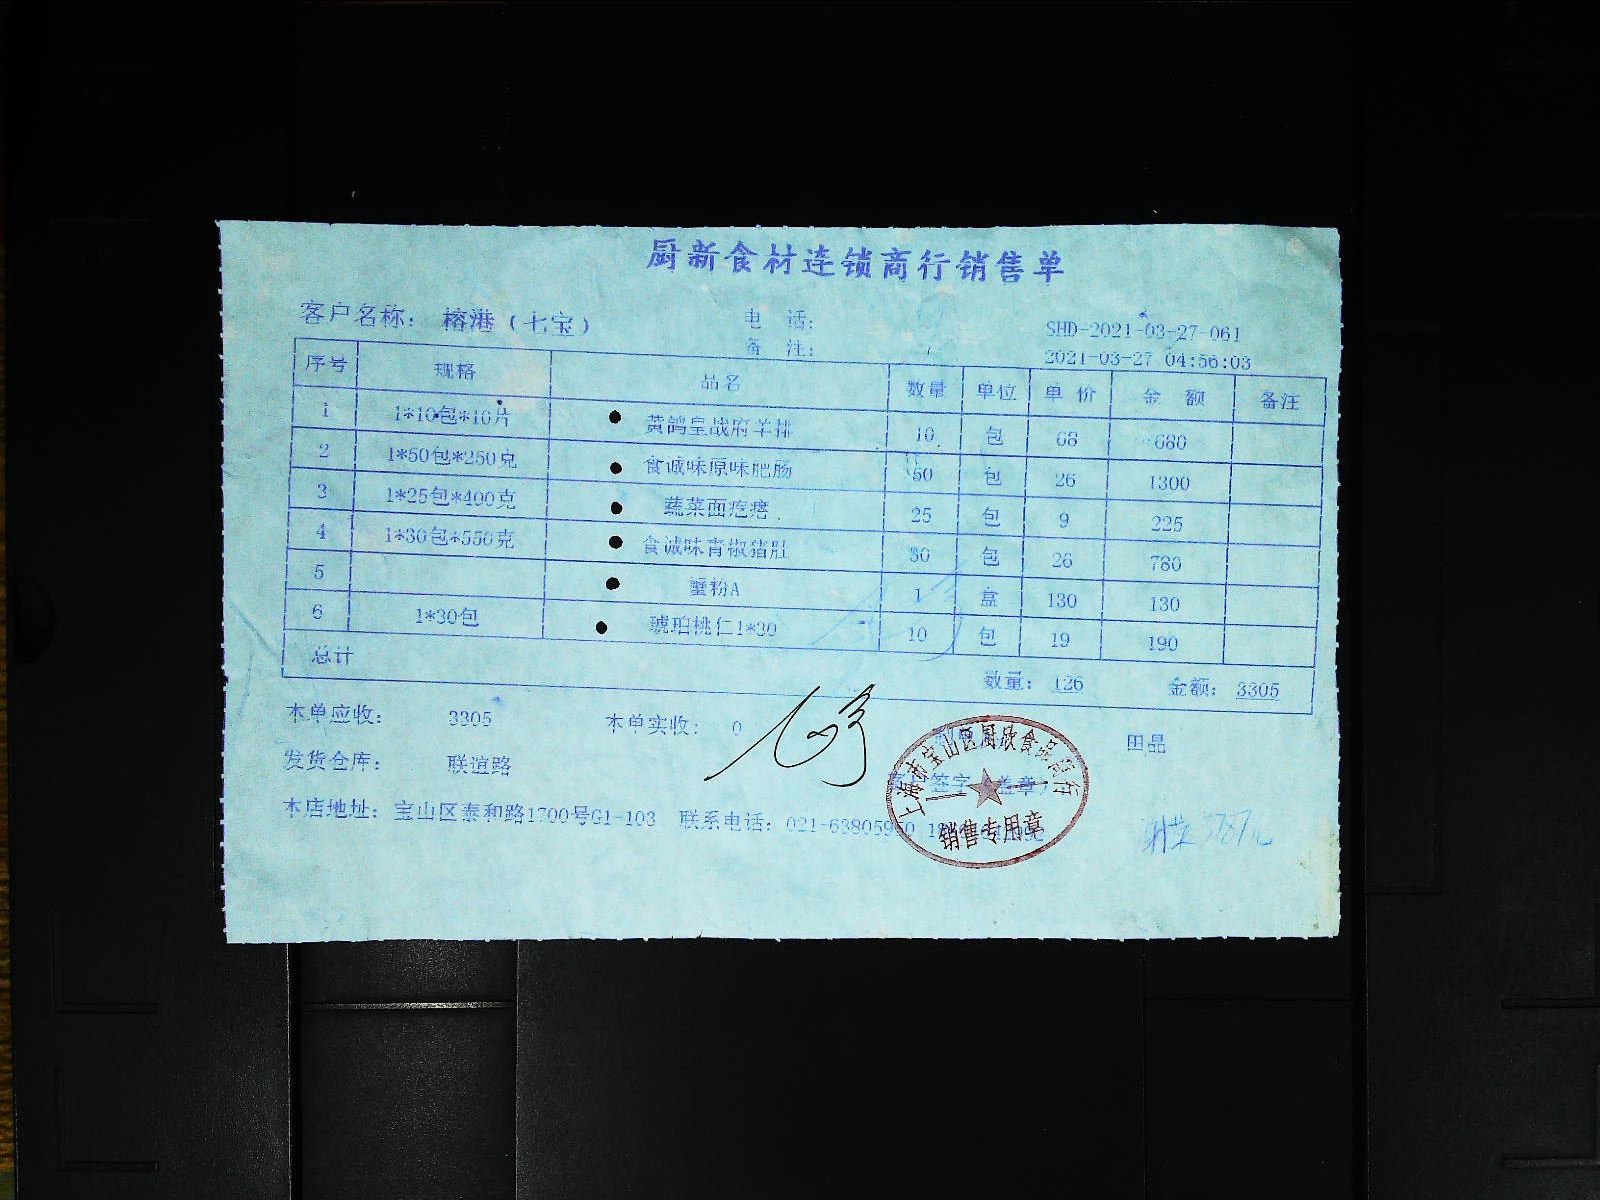 厨新食材连锁商行销售单
客户名称： 榕港（七宝） 电 话： SHD-2021-03-27-061
备 注： 2021-03-27 04:56:03
序号 规格 品名 数量 单位 单 价 金 额 备注
1 1*10包*10片 黄鸽皇战府羊排 10 包 68 680
2 1*50包*250克 食诚味原味肥肠 50 包 26 1300
3 1*25包*400克 蔬菜面疙瘩 25 包 9 225
4 1*30包*550克 食诚味青椒猪肚 30 包 26 780
5 蟹粉A 1 盒 130 130
6 1*30包 琥珀桃仁1*30 10 包 19 190
总计 数量： 126 金额： 3305
本单应收： 3305 本单实收： 0 田晶
发货仓库： 联谊路 客户签字（盖章）
本店地址：宝山区泰和路1700号G1-103 联系电话：
上海市宝山区厨欣食品商行
销售专用章